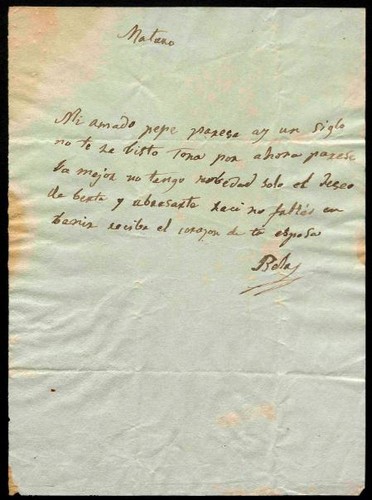 Mataro
Mi amado pepe parese ay un siglo
no te he bisto Tona por ahora parese
ba mejor no tengo nobedad solo el deseo
de berte y abrasarte haci no faltes en
benir recibe el corazon de tu esposa
Bela